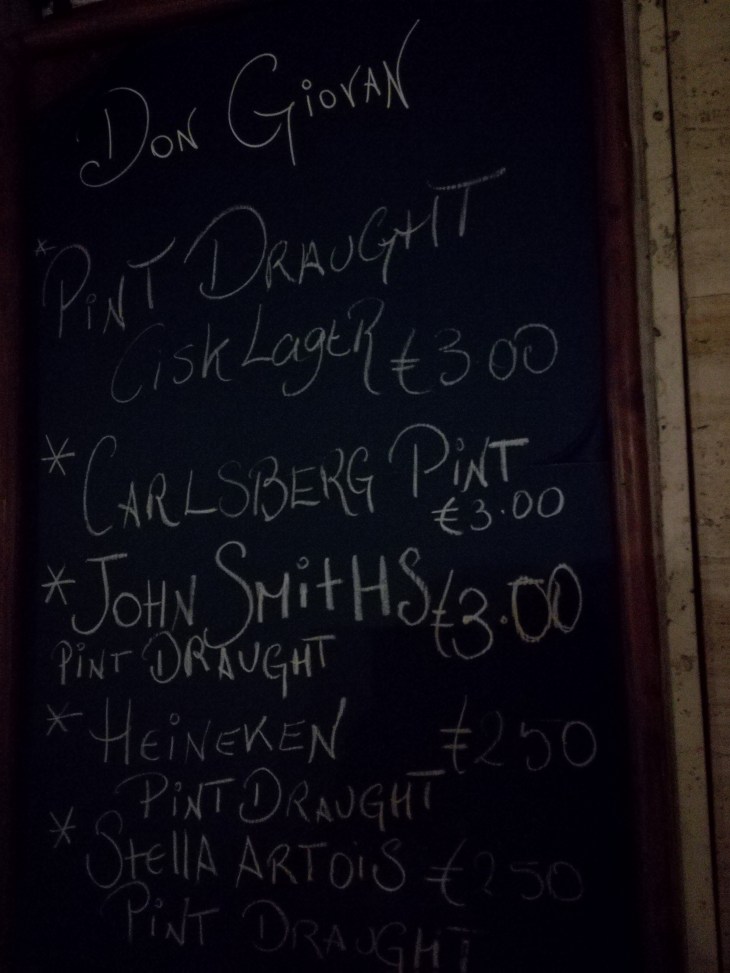 DON GIOVAN
* PiNT DRAUGHT
Cisk LageR €3 00
* CARLSBERG PiNT
€3.00
* JOHN SMiTHS €3.00
PiNT DRAUGHT
* HEiNEKEN €2 50
PiNT DRAUGHT
* STellA ARTOiS €2 50
PiNT DRAUGHT